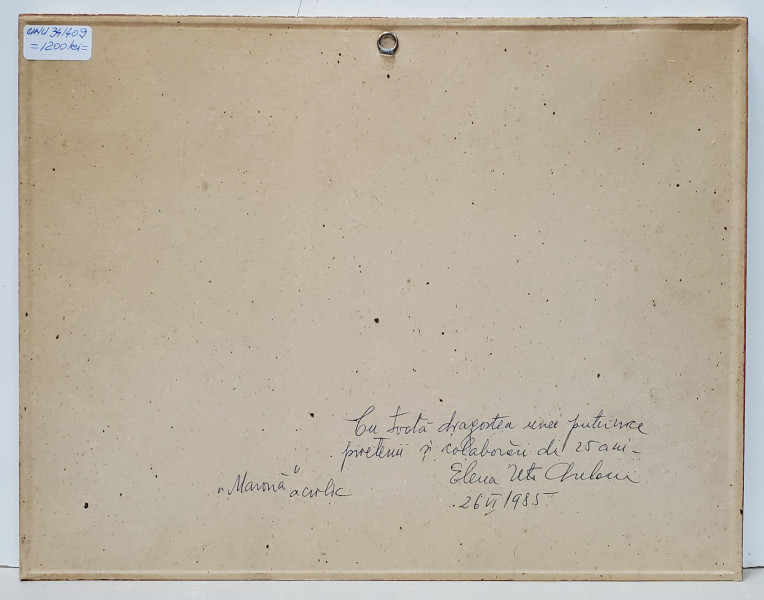 341409
=1200 lei=
Cu toată dragostea unei puternice
prietenii și colaborări de 25 ani -
Elena Uța Chelaru
26 VI 1985
„Marină" acrilic